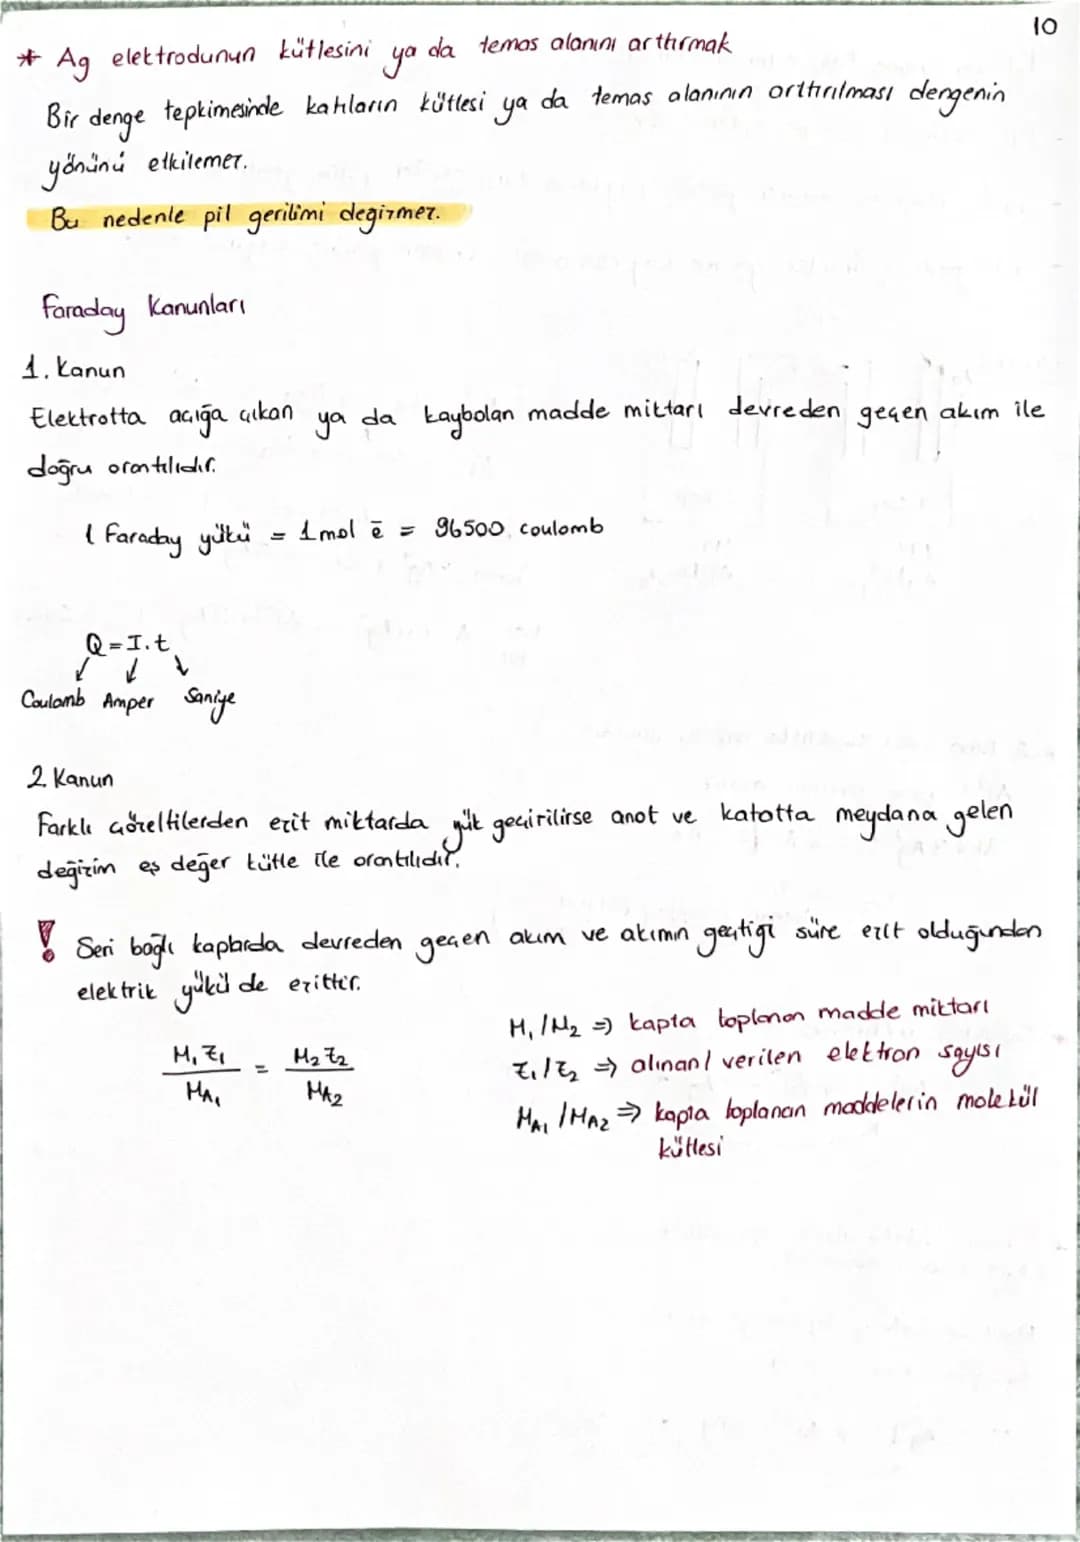 10
* Ag elektrodunun kütlesini ya da temas alanını arttırmak
Bir denge tepkimesinde katıların kütlesi ya da temas alanının arttırılması dengenin
yönünü etkilemez.
Bu nedenle pil gerilimi değişmez.
Faraday Kanunları
1. Kanun
Elektrotta açığa çıkan ya da kaybolan madde miktarı devreden geçen akım ile
doğru orantılıdır.
1 Faraday yükü = 1 mol ē = 96500 coulomb
Q = I.t
Coulomb Amper Saniye
2. Kanun
Farklı çözeltilerden eşit miktarda yük geçirilirse anot ve katotta meydana gelen
değişim eş değer kütle ile orantılıdır.
! Seri bağlı kaplarda devreden geçen akım ve akımın geçtiği süre eşit olduğundan
elektrik yükü de eşittir.
M₁Z₁/MA₁ = M₂Z₂/MA₂
M₁/M₂ => kapta toplanan madde miktarı
Z₁/Z₂ => alınan/verilen elektron sayısı
MA₁/MA₂ => kapta toplanan maddelerin molekül
kütlesi